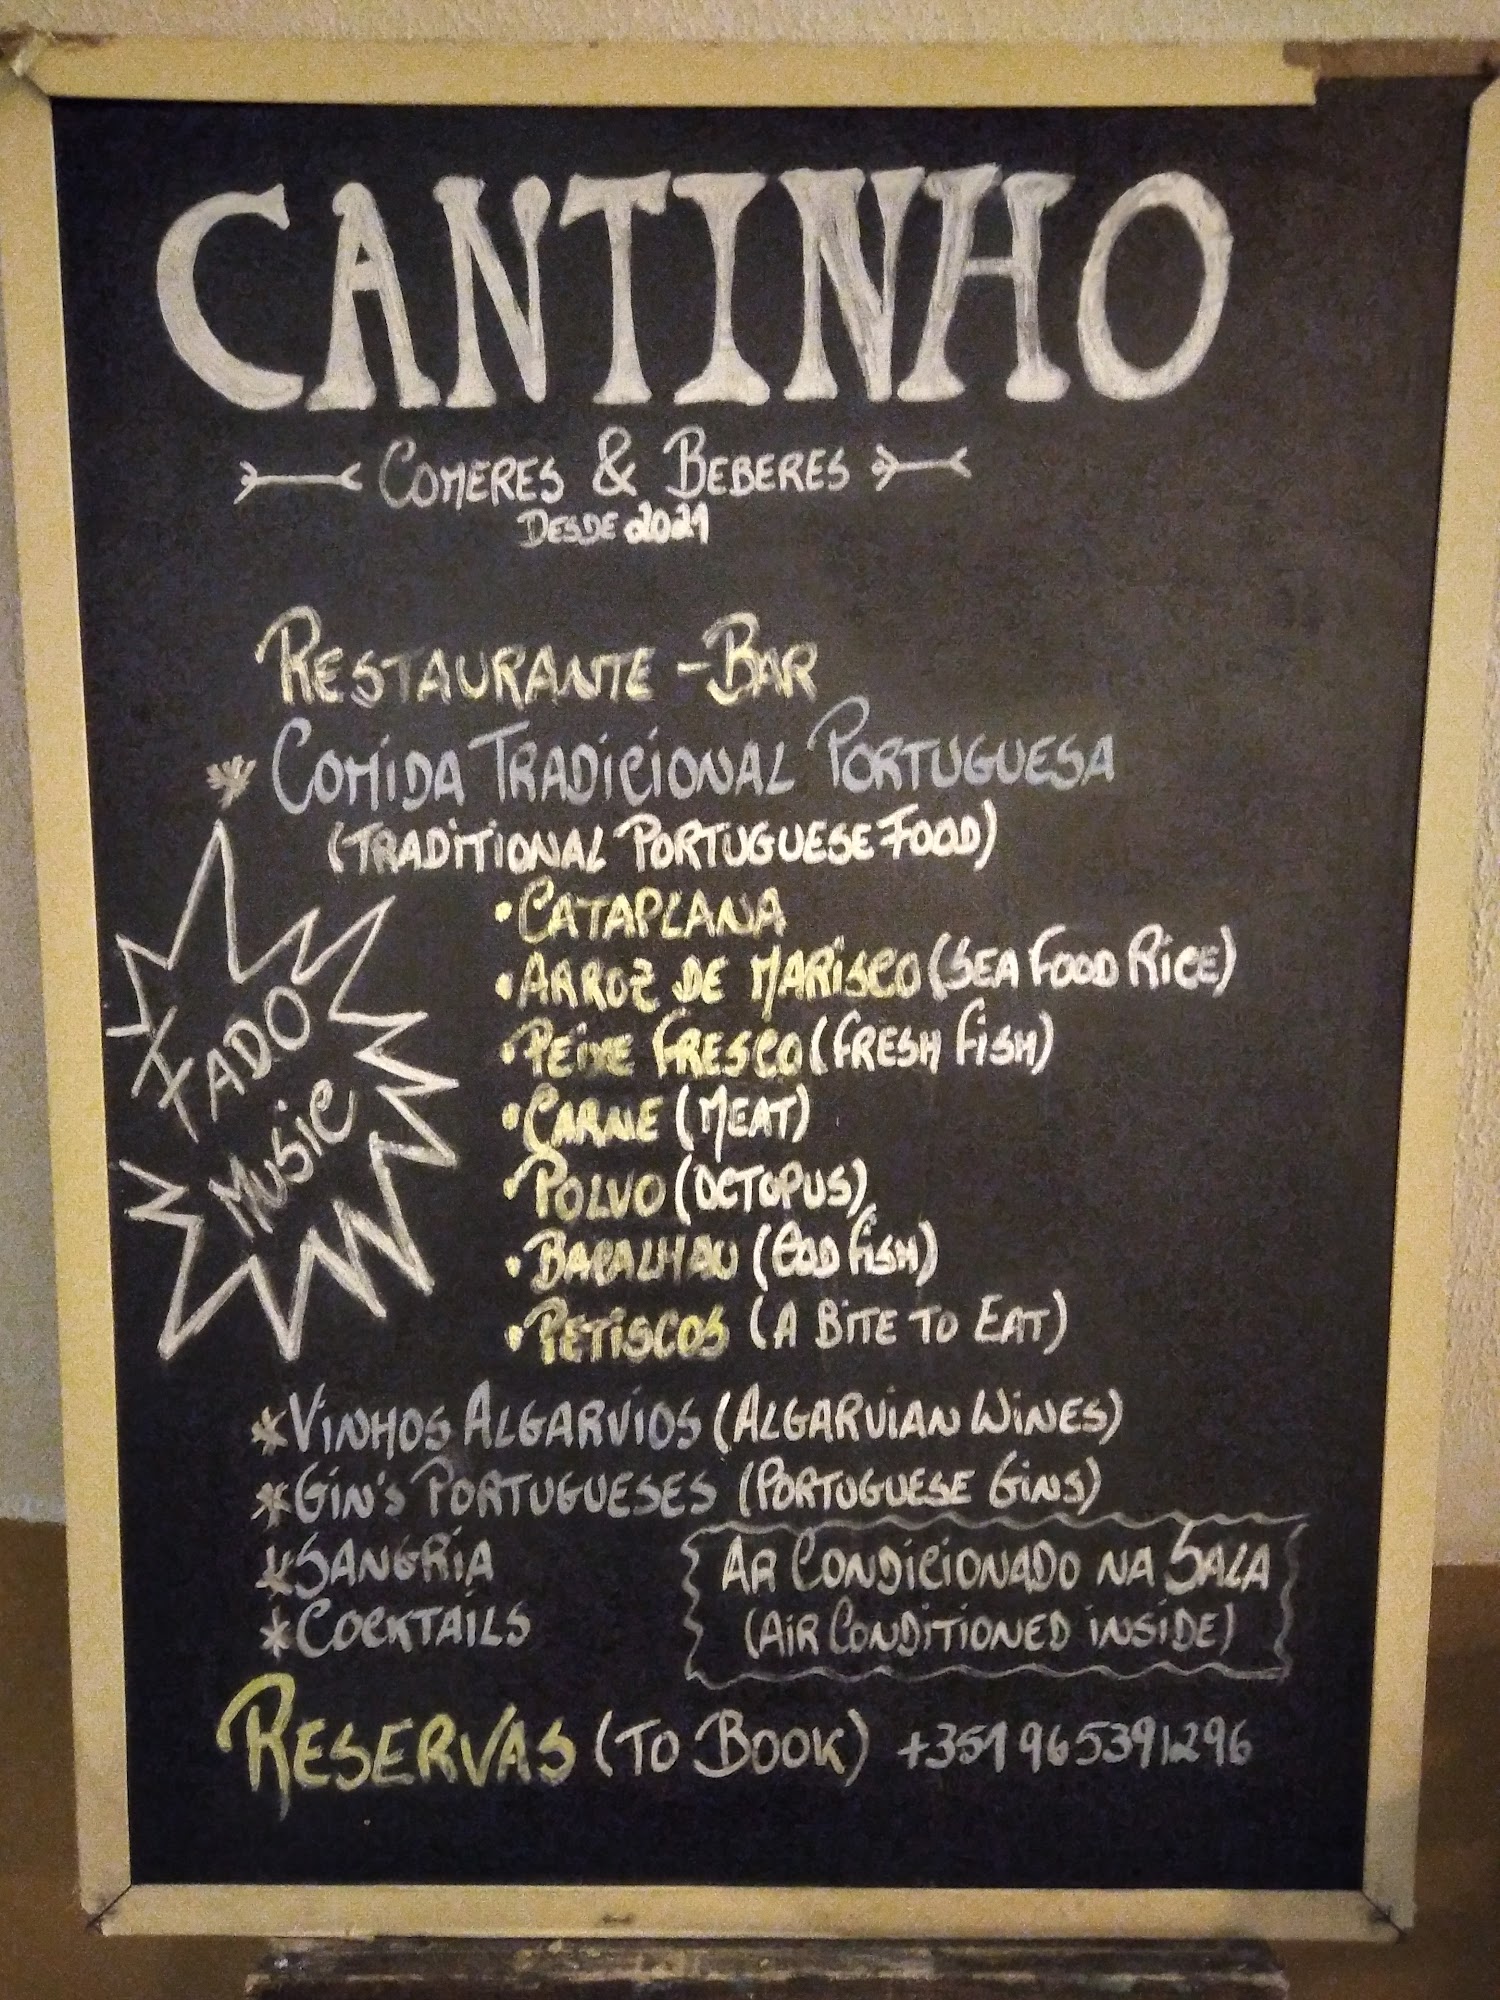 CANTINHO
COMERES & BEBERES
DESDE 2021
RESTAURANTE - BAR
* COMIDA TRADICIONAL PORTUGUESA
(TRADITIONAL PORTUGUESE FOOD)
• CATAPLANA
• ARROZ DE MARISCO (SEA FOOD RICE)
• PEIXE FRESCO (FRESH FISH)
• CARNE (MEAT)
• POLVO (OCTOPUS)
• BACALHAU (COD FISH)
• PETISCOS (A BITE TO EAT)
FADO
MUSIC
* VINHOS ALGARVIOS (ALGARVIAN WINES)
* GIN'S PORTUGUESES (PORTUGUESE GINS)
* SANGRIA
* COCKTAILS
AR CONDICIONADO NA SALA
(AIR CONDITIONED INSIDE)
RESERVAS (TO BOOK) +351 965391296